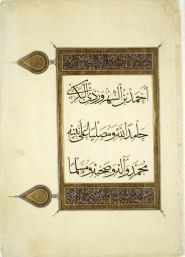 احمد بن السهروردي البكري
حامدا لله ومصليا على نبيه
محمد وآله وصحبه ومسلما